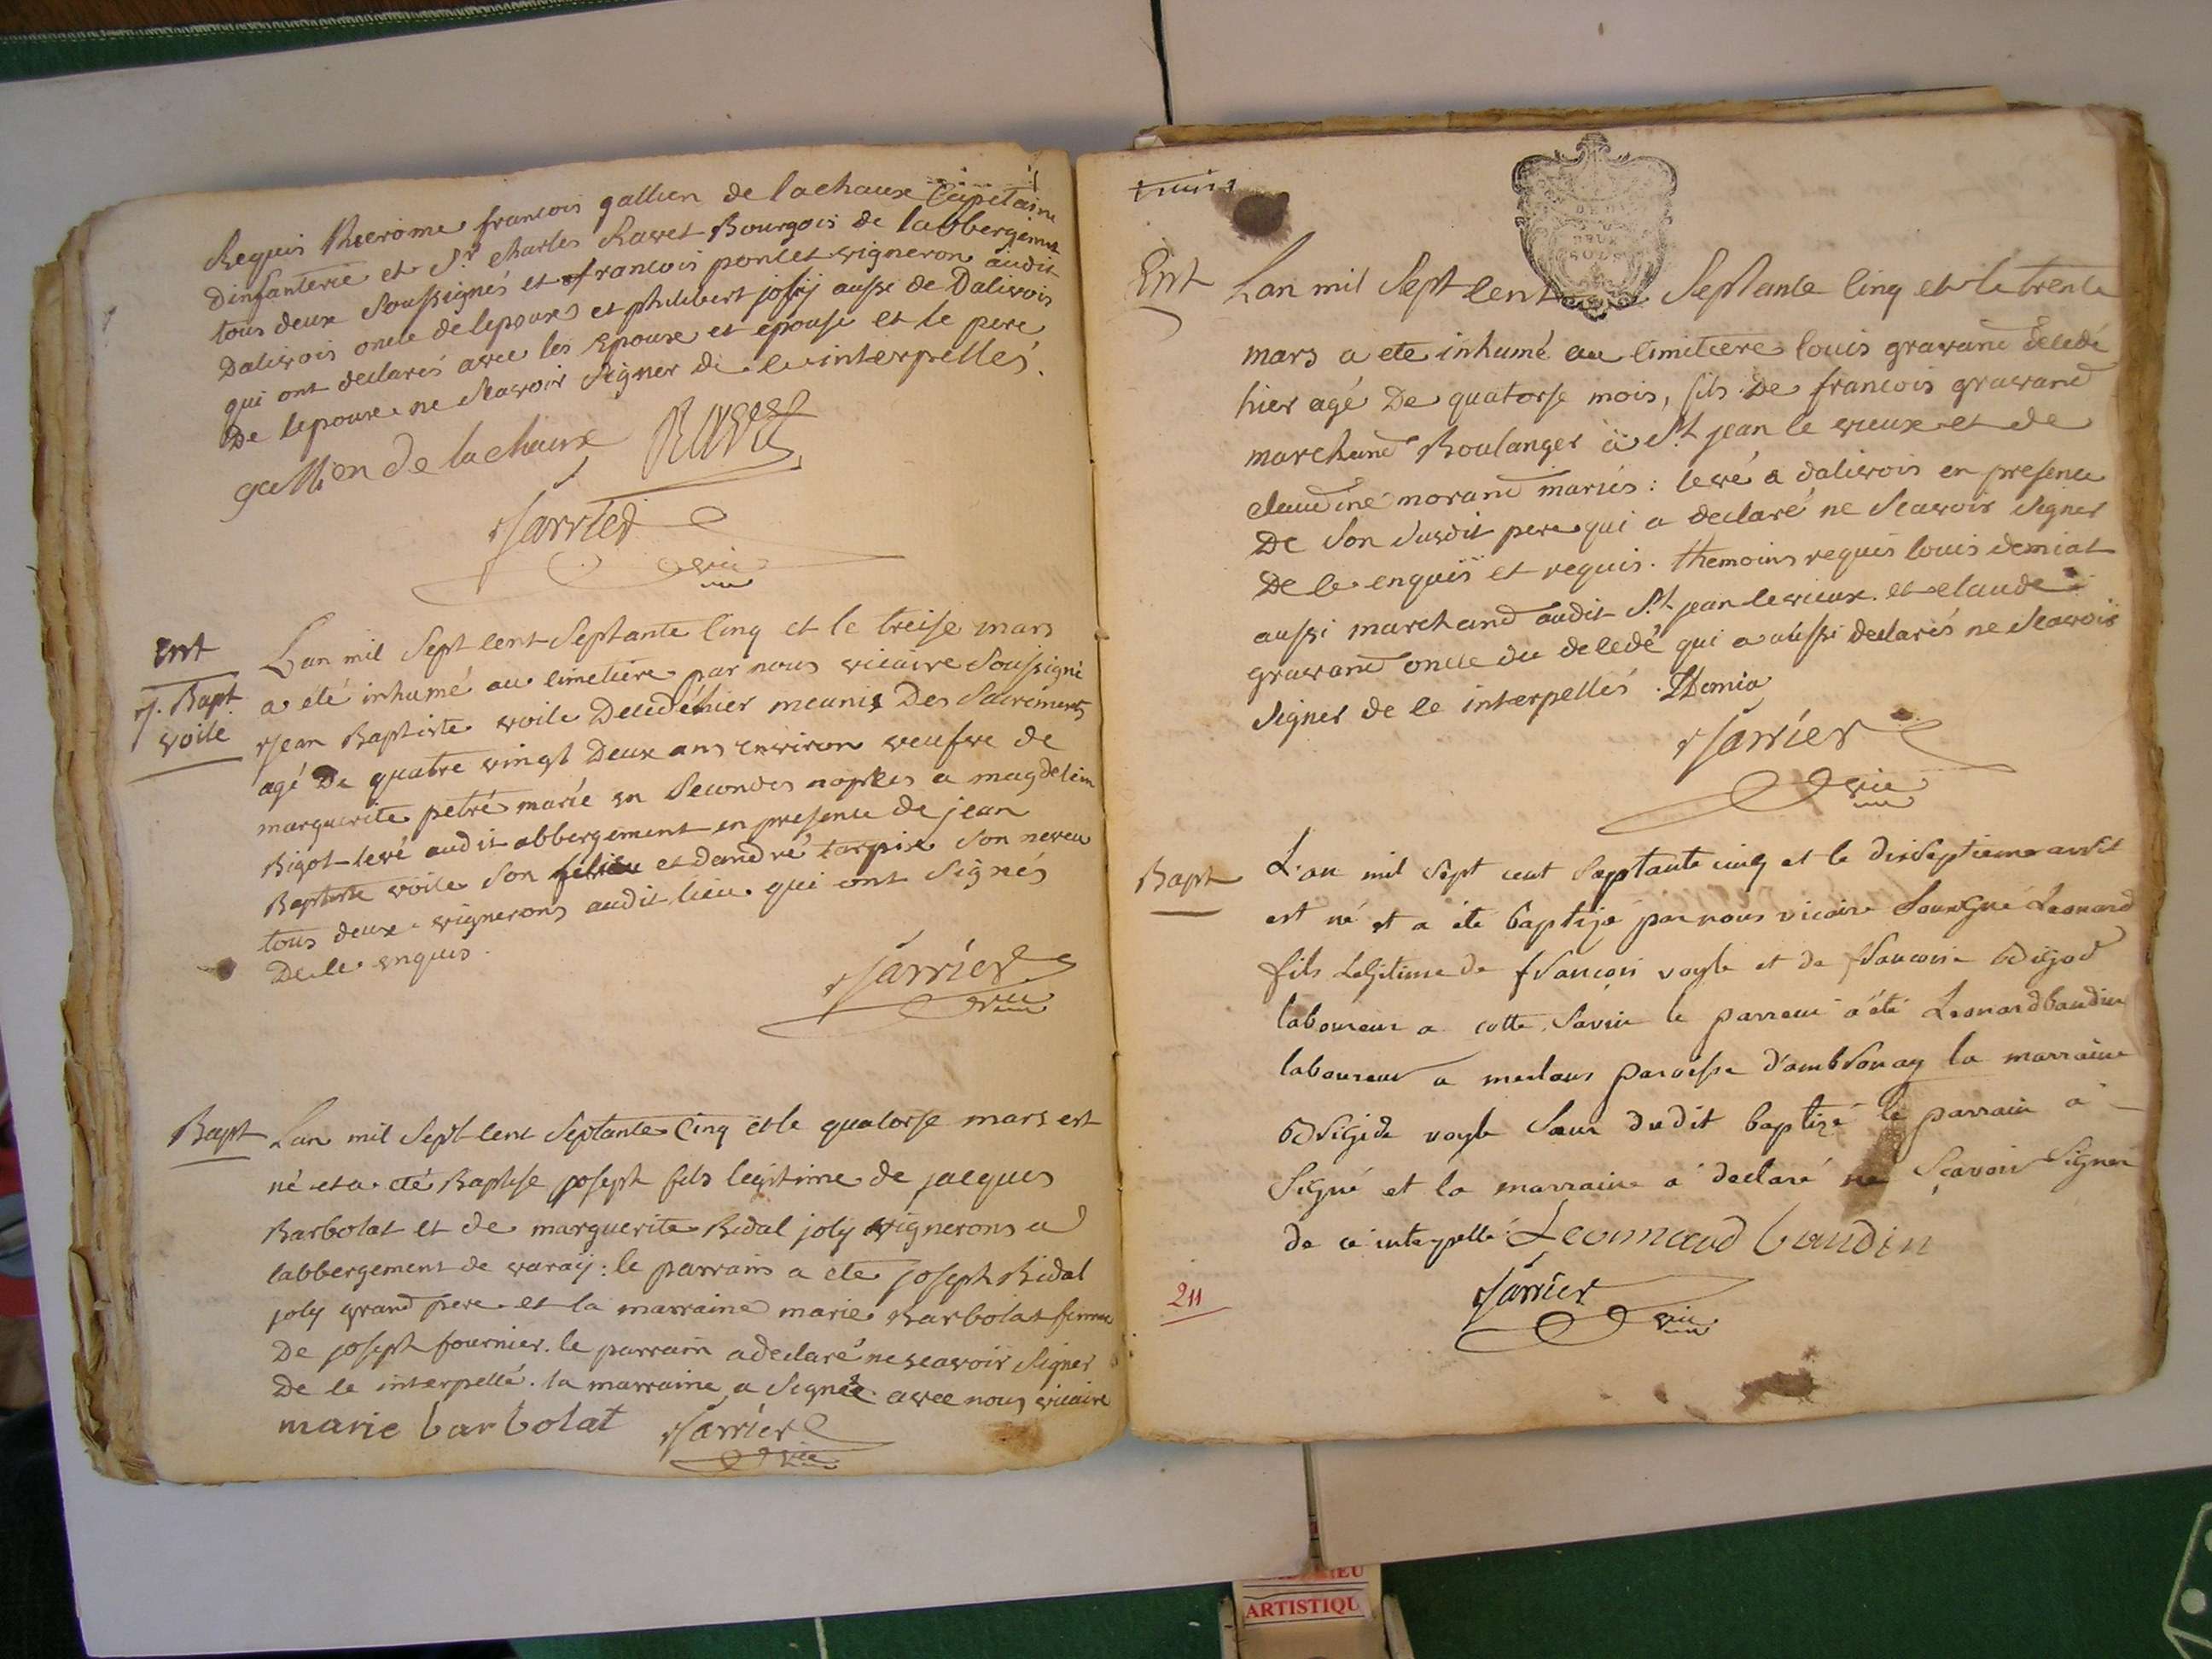 Requis hierome francois gallien de lachaux Capitaine
Dinfanterie et Sr. charles Ravet Bourgois de labbergement
tous deux Soussignés et francois poncet vigneron audit
Dalivois oncle delepoux et philibert joly aussi de Dalivois
qui ont declarés avec les Epoux et epouse et le pere
De lepoux ne Scavoir Signer de ce interpellés.
gallien de lachaux Ravet
Jarrier
vic
Ent
J. Bapt
voile
Lan mil Sept cent Septante Cinq et le treise mars
a été inhumé au cimetiere par nous vicaire Soussigné
Jean Baptiste voile Decedé hier meunis Des Sacrements
agé De quatre vingt Deux ans environ veufve de
marguerite petré marié en Secondes nopces a magdelein
Bigot levé audit abbergement en presence de jean
Baptiste voile Son et dandré tarpin Son neveu
tous deux vignerons audit lieu qui ont Signés
De ce enquis.
Jarrier
vic
Bapt
Lan mil Sept cent Septante Cinq et le quatorse mars est
né et a été Baptise joseph fils legitime de jacques
Barbolat et de marguerite Bidal joly vignerons a
labbergement de varaÿ : le parrain a ete joseph Bidal
joly grand pere et la marraine marie Barbolat femme
De joseph fournier. le parrain a declaré ne scavoir Signer
De ce interpellé. la marraine a Signée avec nous vicaire
marie barbolat Jarrier
vic
DEUX
SOLS
Ent
Lan mil Sept cent Septante Cinq et le trente
mars a ete inhumé au Cimitiere louis gravand decedé
hier agé De quatorse mois, fils De francois gravand
marchand Boulanger a St jean le vieux et de
claudine morand mariés : levé a dalivois en presence
De Son Susdit pere qui a declaré ne Scavoir Signer
De ce enquis et requis. themoins requis louis demiat
aussi marchand audit St jean le vieux. et claude
gravand oncle du decedé qui a aussi declarés ne Scavoir
Signer de ce interpellés. LDemia
Jarrier
vic
Bapt
L'an mil sept cent Septante cinq et le dixseptieme avril
est né et a été baptisé par nous vicaire Soussigné Leonard
fils Legitime de francois voyle et de francoise
laboureur a cotte Savin le parrain a été Leonard baudin
laboureur a merlans paroisse d'ambronay la marraine
brigide voyle Sœur dudit baptizé le parrain a
Signé et la marraine a declaré ne Scavoir Signer
de ce interpellé Leonnard baudin
Jarrier
vic
211
ARTISTIQU